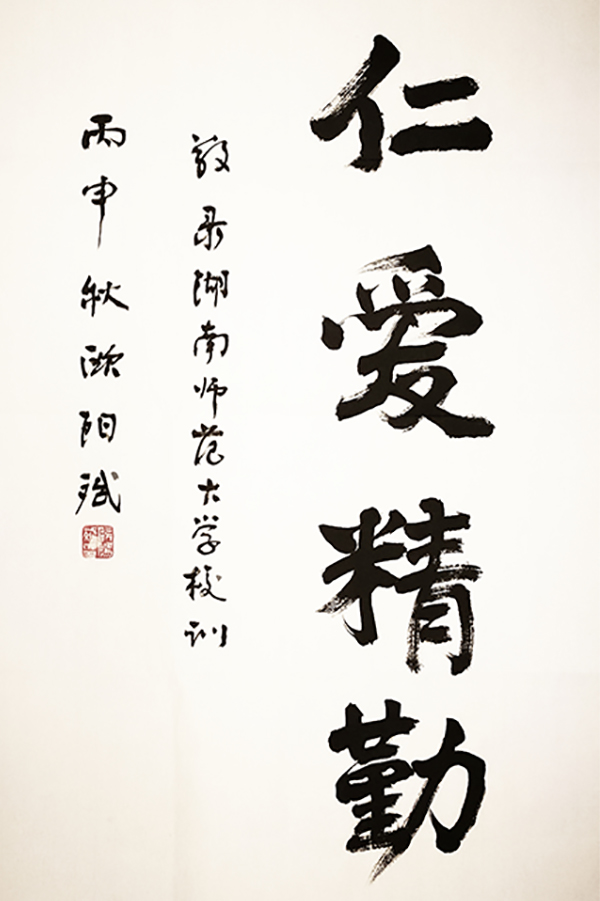 仁爱精勤
敬录湖南师范大学校训
丙申秋欧阳斌